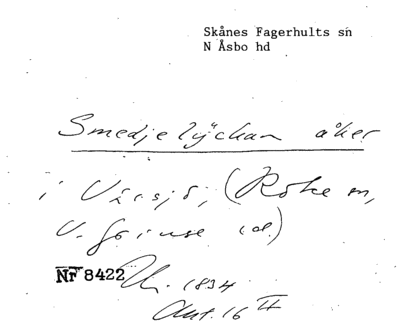 Skånes Fagerhults sn
N Åsbo hd
Smedjelyckan åker
i Värsjö, (Röke sn,
V. Göinge
Nr 8422 1834
Akt. 16 II